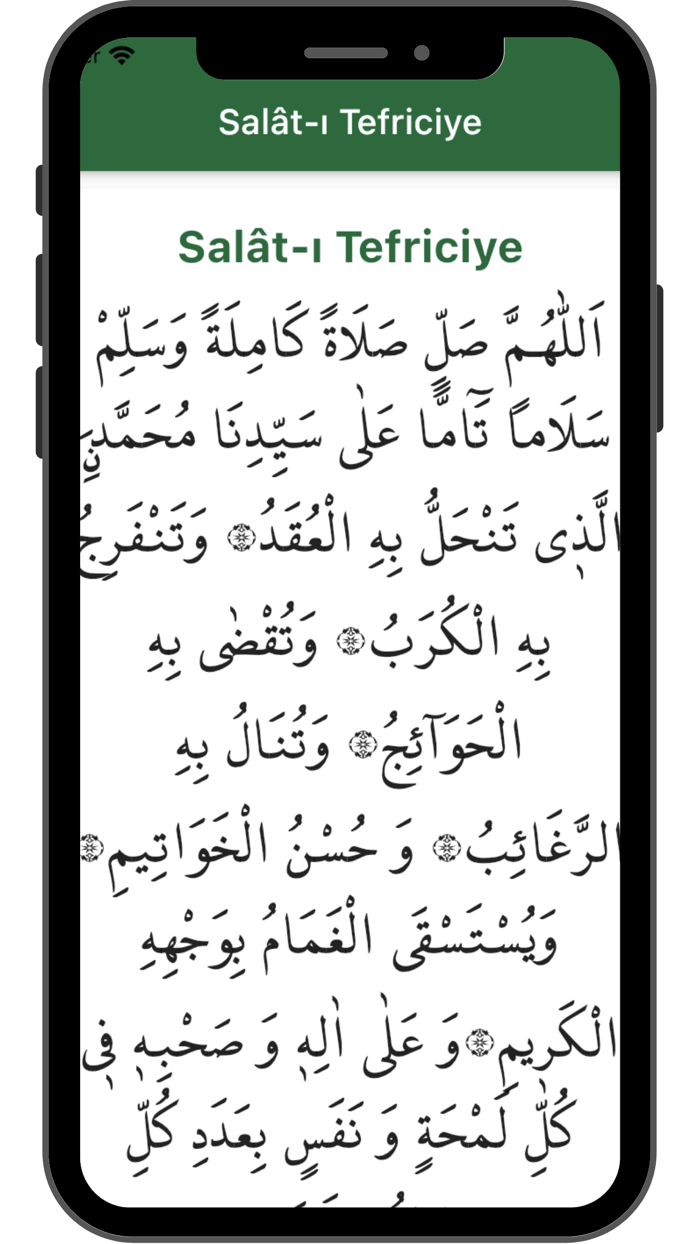 Salât-ı Tefriciye
Salât-ı Tefriciye
اَللّٰهُمَّ صَلِّ صَلَاةً كَامِلَةً وَسَلِّمْ
سَلَاماً تَٓامًّا عَلٰى سَيِّدِنَا مُحَمَّدٍنِ
الَّذٖى تَنْحَلُّ بِهِ الْعُقَدُ۞ وَتَنْفَرِجُ
بِهِ الْكُرَبُ۞ وَتُقْضٰى بِهِ
الْحَوَٓائِجُ۞ وَتُنَالُ بِهِ
الرَّغَائِبُ۞ وَ حُسْنُ الْخَوَاتِيمِ۞
وَيُسْتَسْقَى الْغَمَامُ بِوَجْهِهِ
الْكَرِيمِ۞ وَ عَلٰى اٰلِهٖ وَ صَحْبِهٖ فٖى
كُلِّ لَمْحَةٍ وَ نَفَسٍ بِعَدَدِ كُلِّ